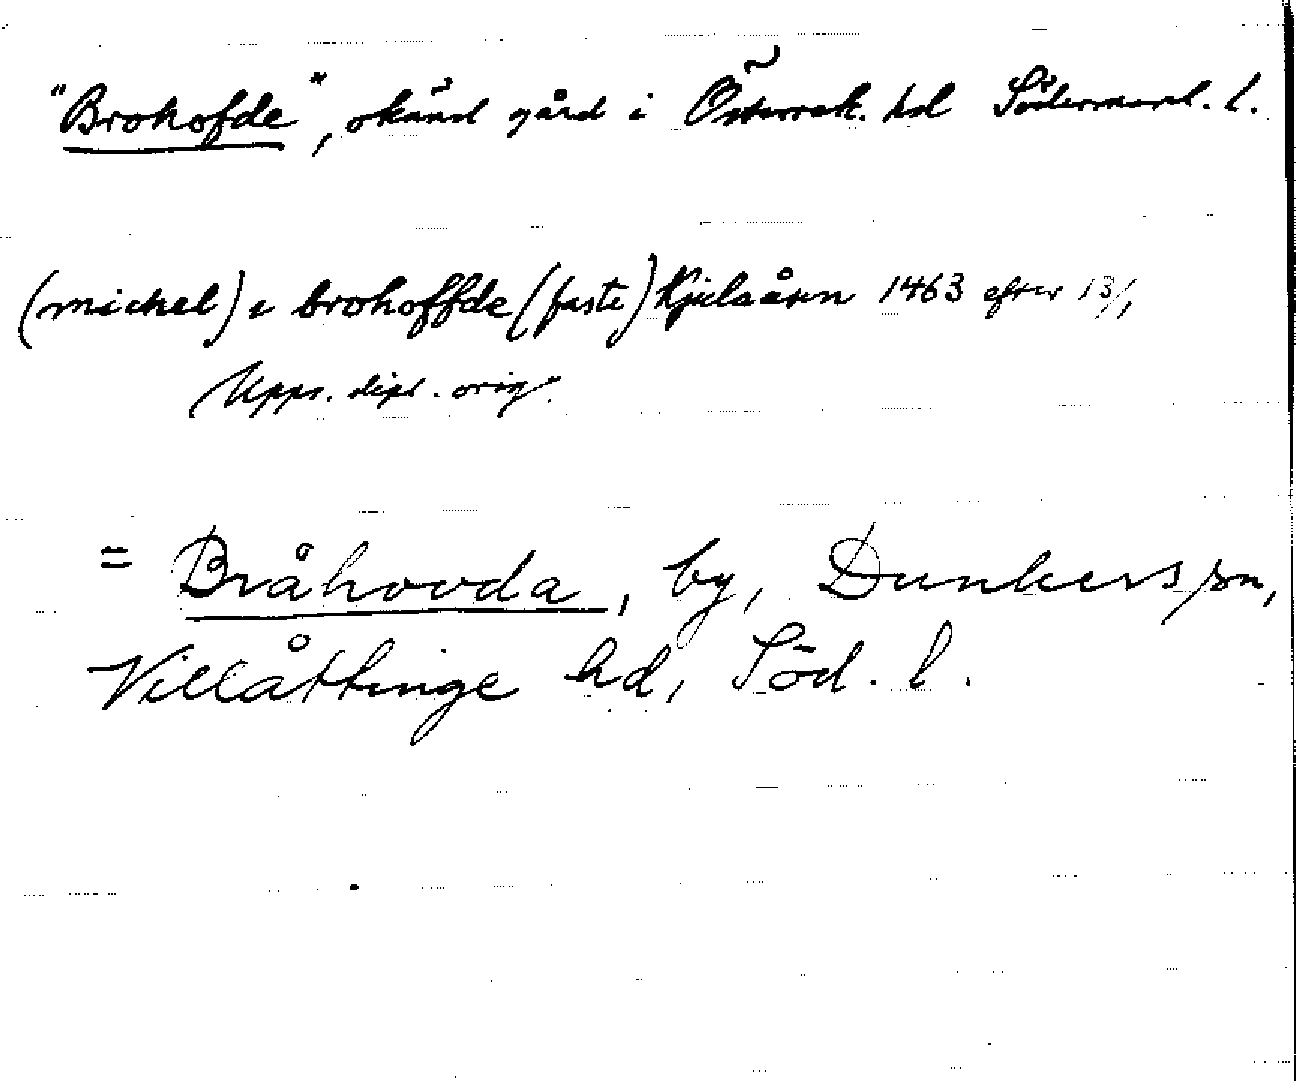 "Brohofde", okänd gård i Österrek. hd Södermanl. l.
(michel) i brohoffde (faste) Kjulaåsen 1463 efter 13/1
Upps. dipl. orig.
= Bråhovda, by, Dunkers sn,
Villåttinge hd, Söd. l.